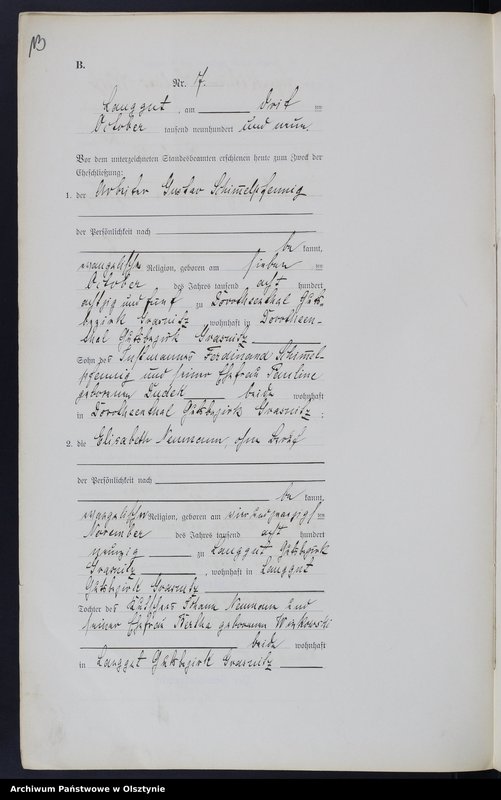 B.
Nr. 17.
Langgut, am drit ten
October tausend neunhundert und neun.
Vor dem unterzeichneten Standesbeamten erschienen heute zum Zweck der
Eheschließung:
1. der Arbeiter Gustav Schimelpfennig
der Persönlichkeit nach
be kannt,
evangelischer Religion, geboren am sieben ten
October des Jahres tausend acht hundert
achtzig und fünf zu Dorotheenthal Guts-
bezirk Grasnitz, wohnhaft in Dorotheen-
thal Gutsbezirk Grasnitz
Sohn des Instmannes Ferdinand Schimel-
pfennig und seiner Ehefrau Pauline
geborenen Dudek beide wohnhaft
in Dorotheenthal Gutsbezirk Grasnitz;
2. die Elisabeth Neumann, ohne Beruf
der Persönlichkeit nach
be kannt,
evangelischer Religion, geboren am vierundzwanzigs ten
November des Jahres tausend acht hundert
neunzig zu Langgut Gutsbezirk
Grasnitz, wohnhaft in Langgut
Gutsbezirk Grasnitz
Tochter des Johann Neumann und
seiner Ehefrau Bertha geborenen
beide wohnhaft
in Langgut Gutsbezirk Grasnitz
Archiwum Państwowe w Olsztynie